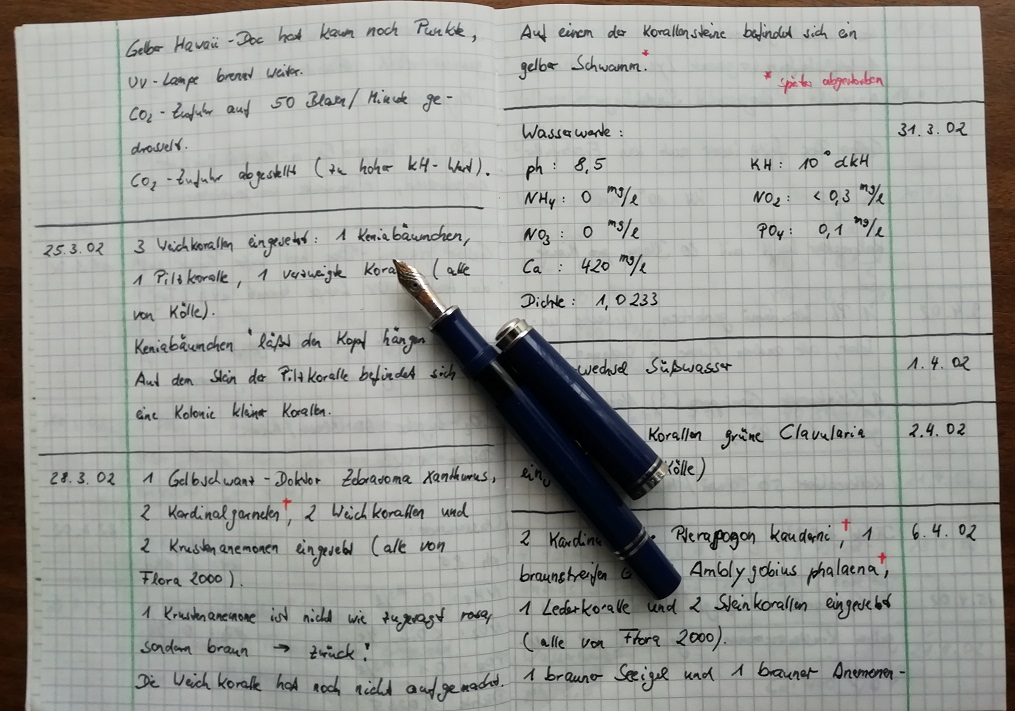 Gelber Hawaii-Doc hat kaum noch Punkte,
UV-Lampe brennt weiter.
CO₂-Zufuhr auf 50 Blasen/Minute ge-
drosselt.
CO₂-Zufuhr abgestellt (zu hoher kH-Wert).
25.3.02 3 Weichkorallen eingesetzt: 1 Keniabäumchen,
1 Pilzkoralle, 1 verzweigte Kora (alle
von Kölle).
Keniabäumchen läßt den Kopf hängen
Auf dem Stein der Pilzkoralle befindet sich
eine Kolonie kleiner Korallen.
28.3.02 1 Gelbschwanz-Doktor Zebrasoma Xanthurus,
2 Kardinalgarnelen†, 2 Weichkorallen und
2 Krustenanemonen eingesetzt (alle von
Flora 2000).
1 Krustenanemone ist nicht wie zugesagt rosa,
sondern braun → zurück!
Die Weichkoralle hat noch nicht aufgemacht.
Auf einem der Korallensteine befindet sich ein
gelber Schwamm.*
* später abgestorben
Wasserwerte: 31.3.02
ph: 8,5 KH: 10° dkH
NH₄: 0 mg/l NO₂: < 0,3 mg/l
NO₃: 0 mg/l PO₄: 0,1 mg/l
Ca: 420 mg/l
Dichte: 1,0233
wechsel Süßwasser 1.4.02
Korallen grüne Clavularia 2.4.02
ein Kölle)
2 Kardina Pterapogon kauderni†, 1 6.4.02
braunstreifen G Amblygobius phalaena†,
1 Lederkoralle und 2 Steinkorallen eingesetzt
(alle von Flora 2000).
1 brauner Seeigel und 1 brauner Anemonen-